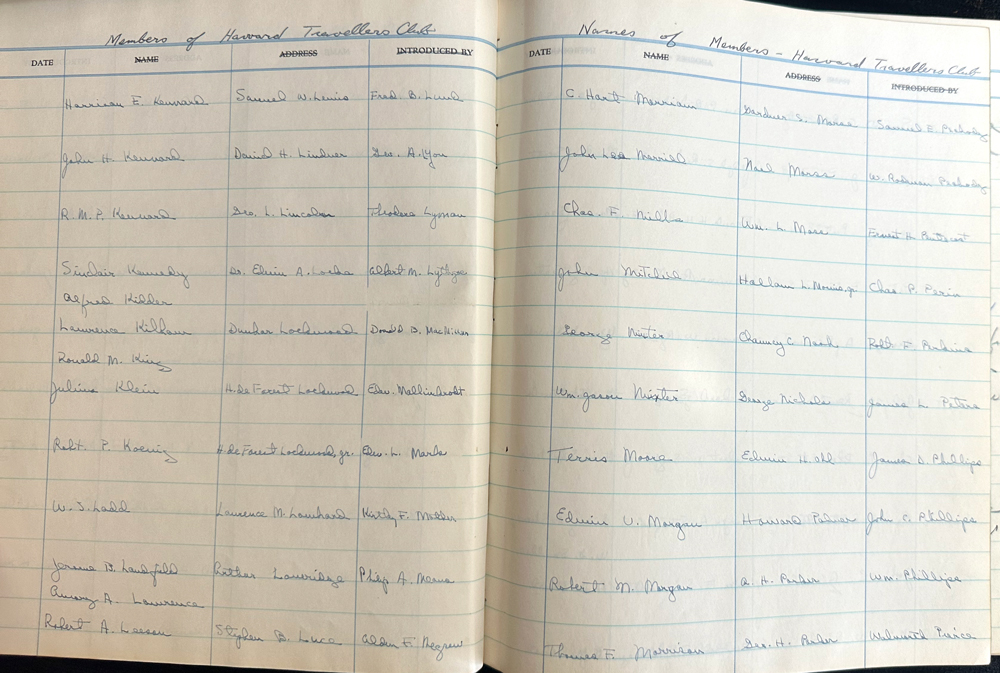 Members of Harvard Travellers Club
DATE NAME ADDRESS INTRODUCED BY
Harrison E. Kennard Samuel W. Lewis Fred. B. Lund
John H. Kennard David H. Lindner Geo. A. Lyon
R. M. P. Kennard Geo. L. Lincoln Theodore Lyman
Sinclair Kennedy Dr. Edwin A. Locke Albert M. Lythgoe
Alfred Kidder
Lawrence Kilham Dunbar Lockwood Donald B. MacMillan
Ronald M. King
Julius Klein H. de Forest Lockwood Edw. Mallinckrodt
Robt. P. Koenig H. de Forest Lockwood, jr. Edw. L. Mark
W. S. Ladd Laurence M. Lombard Kirtley F. Mather
Jerome B. Landfield Lothar Loveridge Philip A. Means
Amory A. Lawrence
Robert A. Leeson Stephen B. Luce Alden F. Megrew
Names of Members - Harvard Travellers Club
DATE NAME ADDRESS INTRODUCED BY
C. Hart Merriam Gardner S. Morse Samuel E. Peabody
John Lee Merrill Noel Morss W. Rodman Peabody
Chas. F. Mills Wm. L. Moss Ernest H. Pentecost
John Mitchell Hallam L. Movius, jr. Chas. P. Perin
George Mixter Chauncy C. Nash Robt. F. Perkins
Wm. Jason Mixter George Nichols James L. Peters
Terris Moore Edwin H. Ohl James D. Phillips
Edwin V. Morgan Howard Palmer John C. Phillips
Robert M. Morgan A. H. Parker Wm. Phillips
Thomas F. Morrison Geo. H. Parker Walworth Pierce